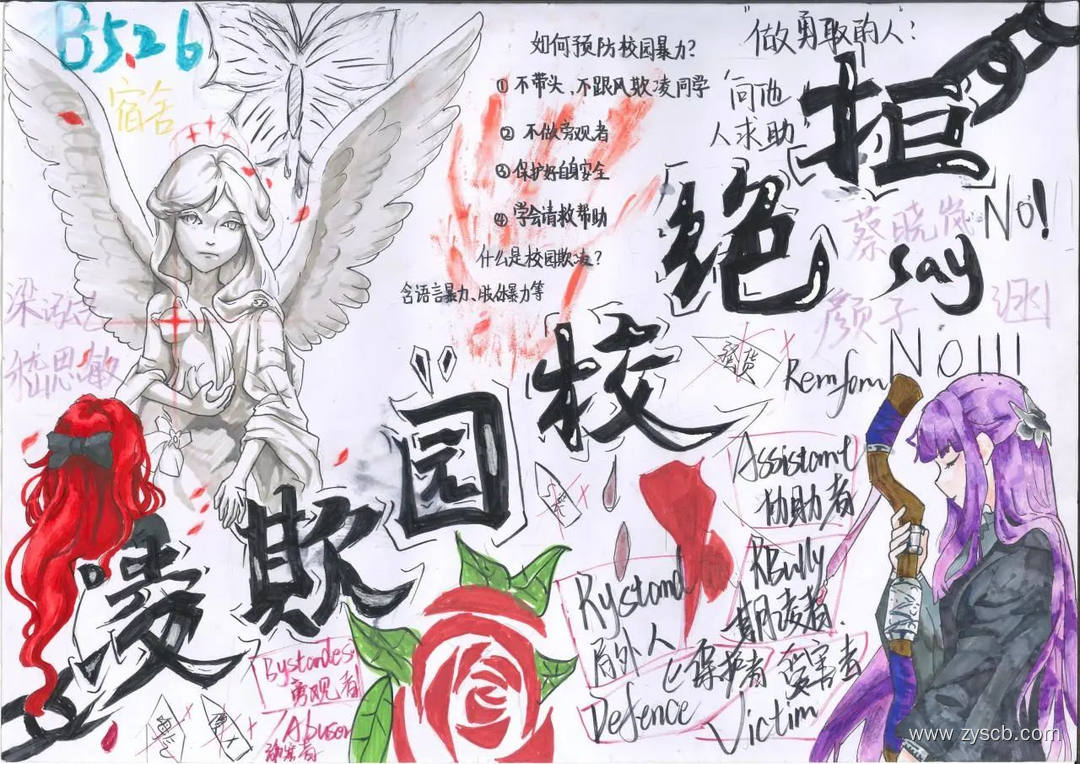 B526
宿舍
如何预防校园暴力?
① 不带头、不跟风欺凌同学
② 不做旁观者
③ 保护好自身安全
④ 学会请教帮助
什么是校园欺凌?
含语言暴力、肢体暴力等
"做勇敢的人":
"向他
人求助"
拒
绝
校
园
欺
凌
say
No!
NO!!!
蔡晓岚
颜子
梁
嵇思敏
Remfom
Assistant
协助者
Kystand
局外人
Defence
保护者
KBully
期凌者
受害者
Victim
Bystandes
旁观者
Abuser
www.zyscb.com